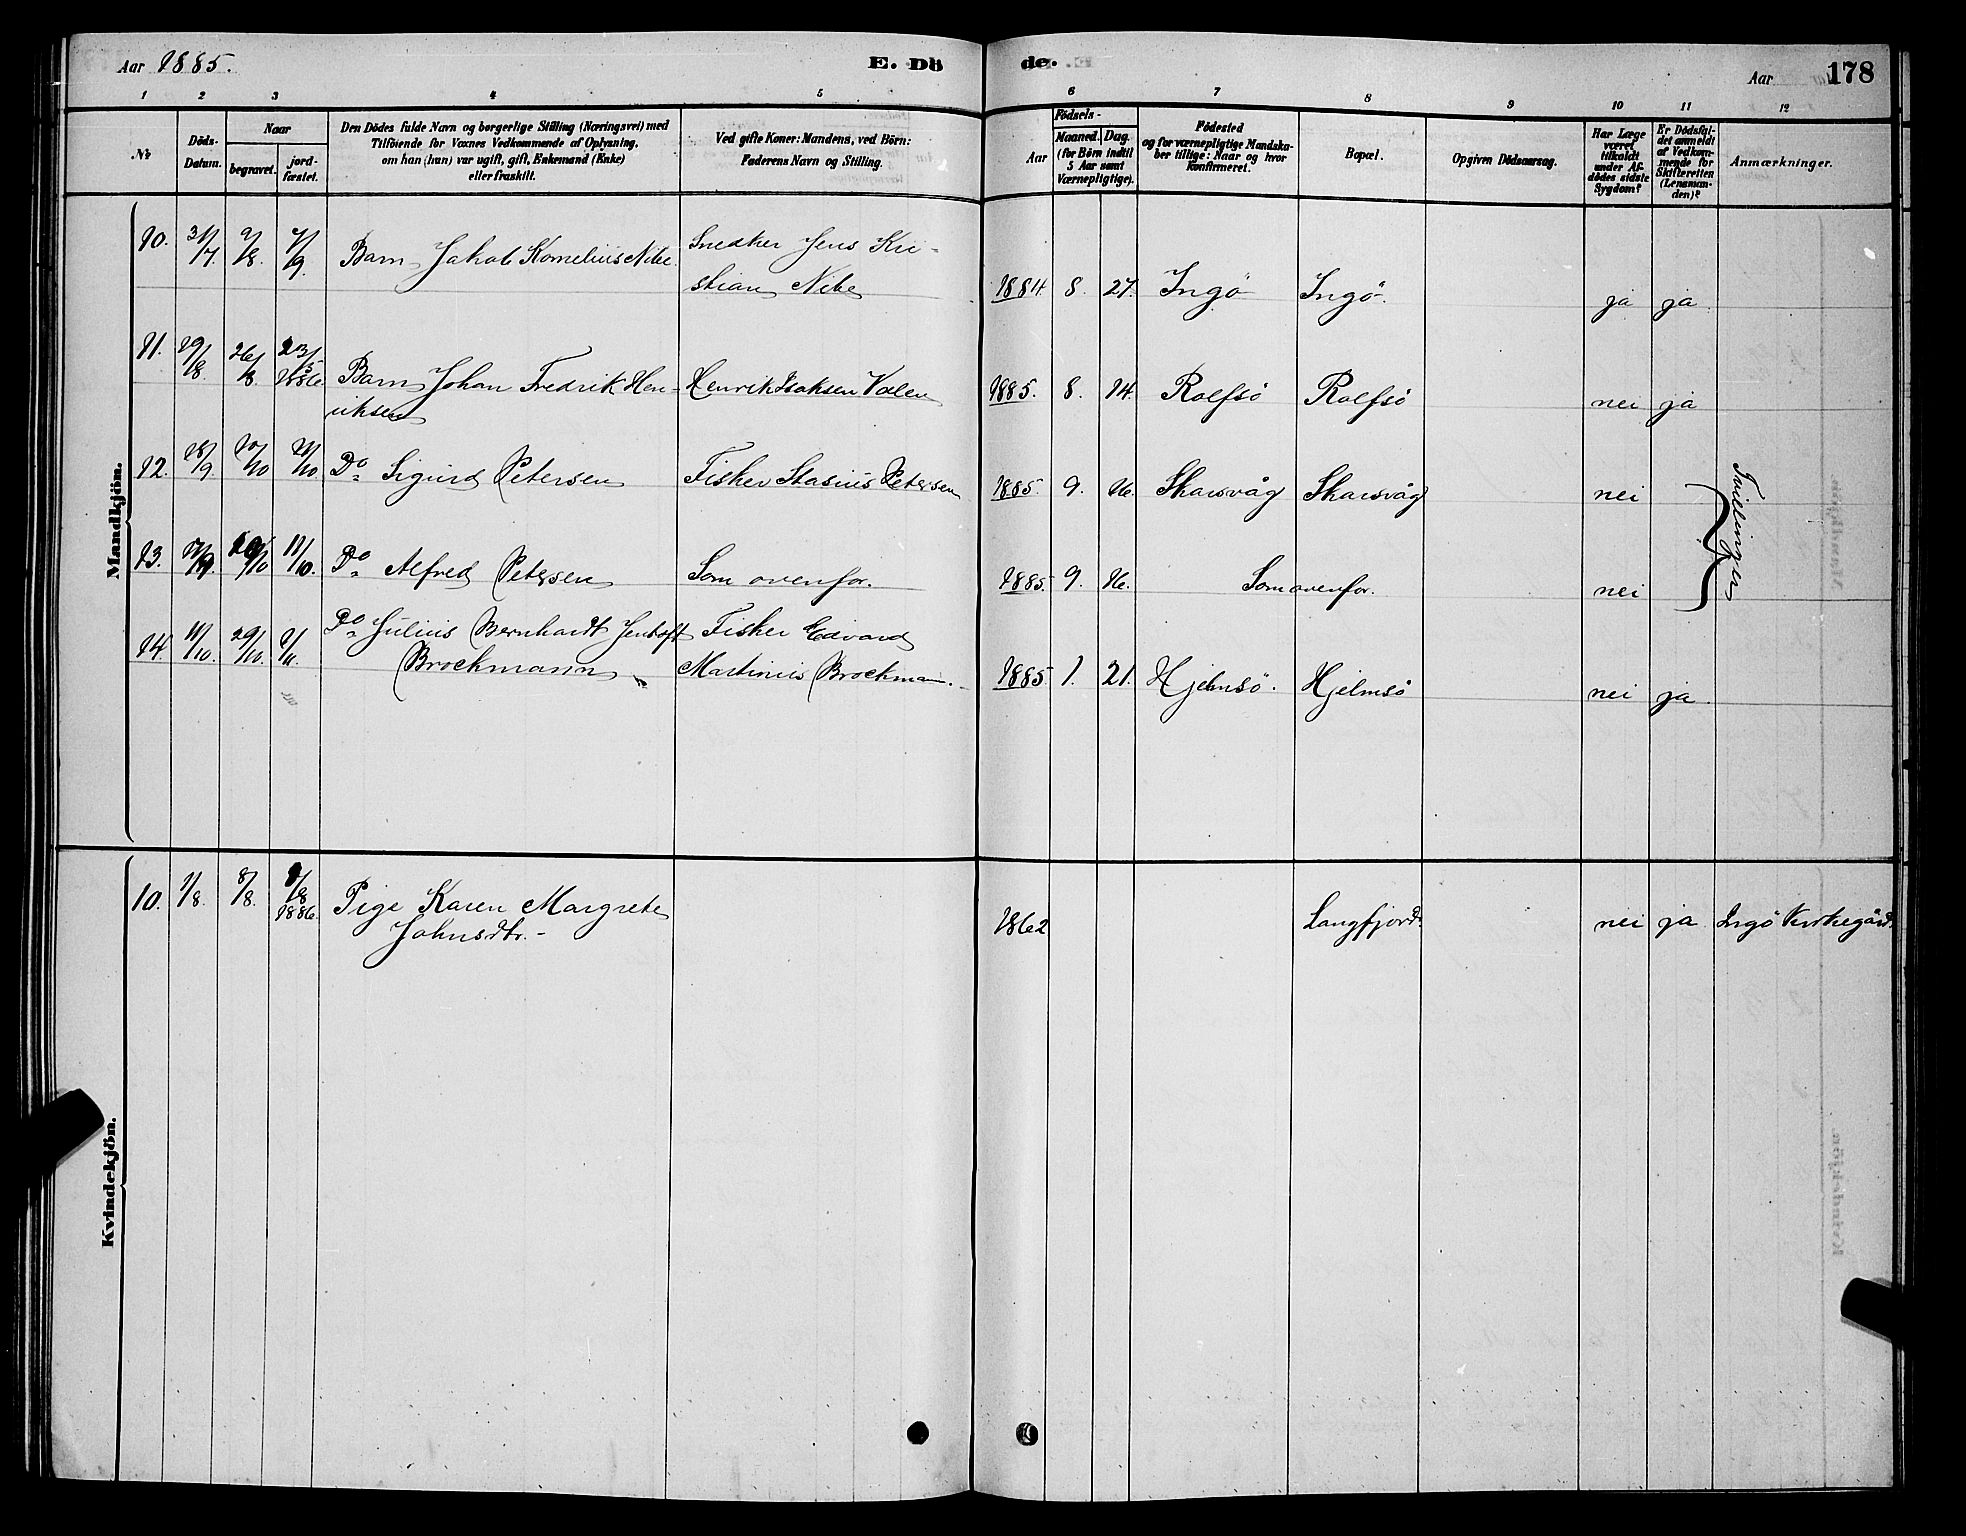 Aar 1885.
E. Dö
de.
Aar
178
1 2 3 4 5
6 7 8 9 10 11 12
№
Döds-
Datum.
Naar
begravet.
jord-
fæstet.
Den Dödes fulde Navn og borgerlige Stilling (Næringsvei) med
Tilföiende for Voxnes Vedkommende af Oplysning,
om han (hun) var ugift, gift, Enkemand (Enke)
eller fraskilt.
Ved gifte Koner: Mandens, ved Börn:
Faderens Navn og Stilling.
Födsels-
Aar
Maaned.
Dag.
(for Börn indtil
5 Aar samt
Værnepligtige).
Födested
og for værnepligtige Mandska-
ber tillige: Naar og hvor
Konfirmeret.
Bopæl.
Opgiven Dödsaarsag.
Har Læge
været
tilkaldt
under Af-
dödes sidste
Sygdom?
Er Dödsfal-
det anmeldt
af Vedkom-
mende for
Skifteretten
(Lensman-
den)?
Anmærkninger.
Mandkjön.
10. 31/7 9/8. 7/9. Barn Jakob Kornelius Nibe. Snedker Jens Kri-
stian Nibe 1884 8. 27. Ingö Ingö. ja ja
11. 19/8. 26/8. 23/5 1886 Barn Johan Fredrik Hen- Henrik Isaksen Valen 1885. 8. 14. Rolfsö Rolfsö nei ja
riksen
12. 18/9. 10/10 11/10. Do Sigurd Petersen Fisker Stasius Petersen 1885. 9. 16. Skarsvåg Skarsvåg nei
Tvillinger
13. 10/10 11/10. Do Alfred Petersen Som ovenfor. 1885. 9. 16. Som ovenfor. nei
14. 11/10. 29/10. 1/11. Do Julius Bernhardt Jentoft Fisker Edvard
Brockmann Martinus Brockmann. 1885 1. 21. Hjelmsö. Hjelmsö nei ja
Kvindekjön.
10. 1/8. 8/8. 1886. Pige Karen Margrete 1862 Langfjord. nei ja Ingö Kirkegård.
Johnsdtr.-